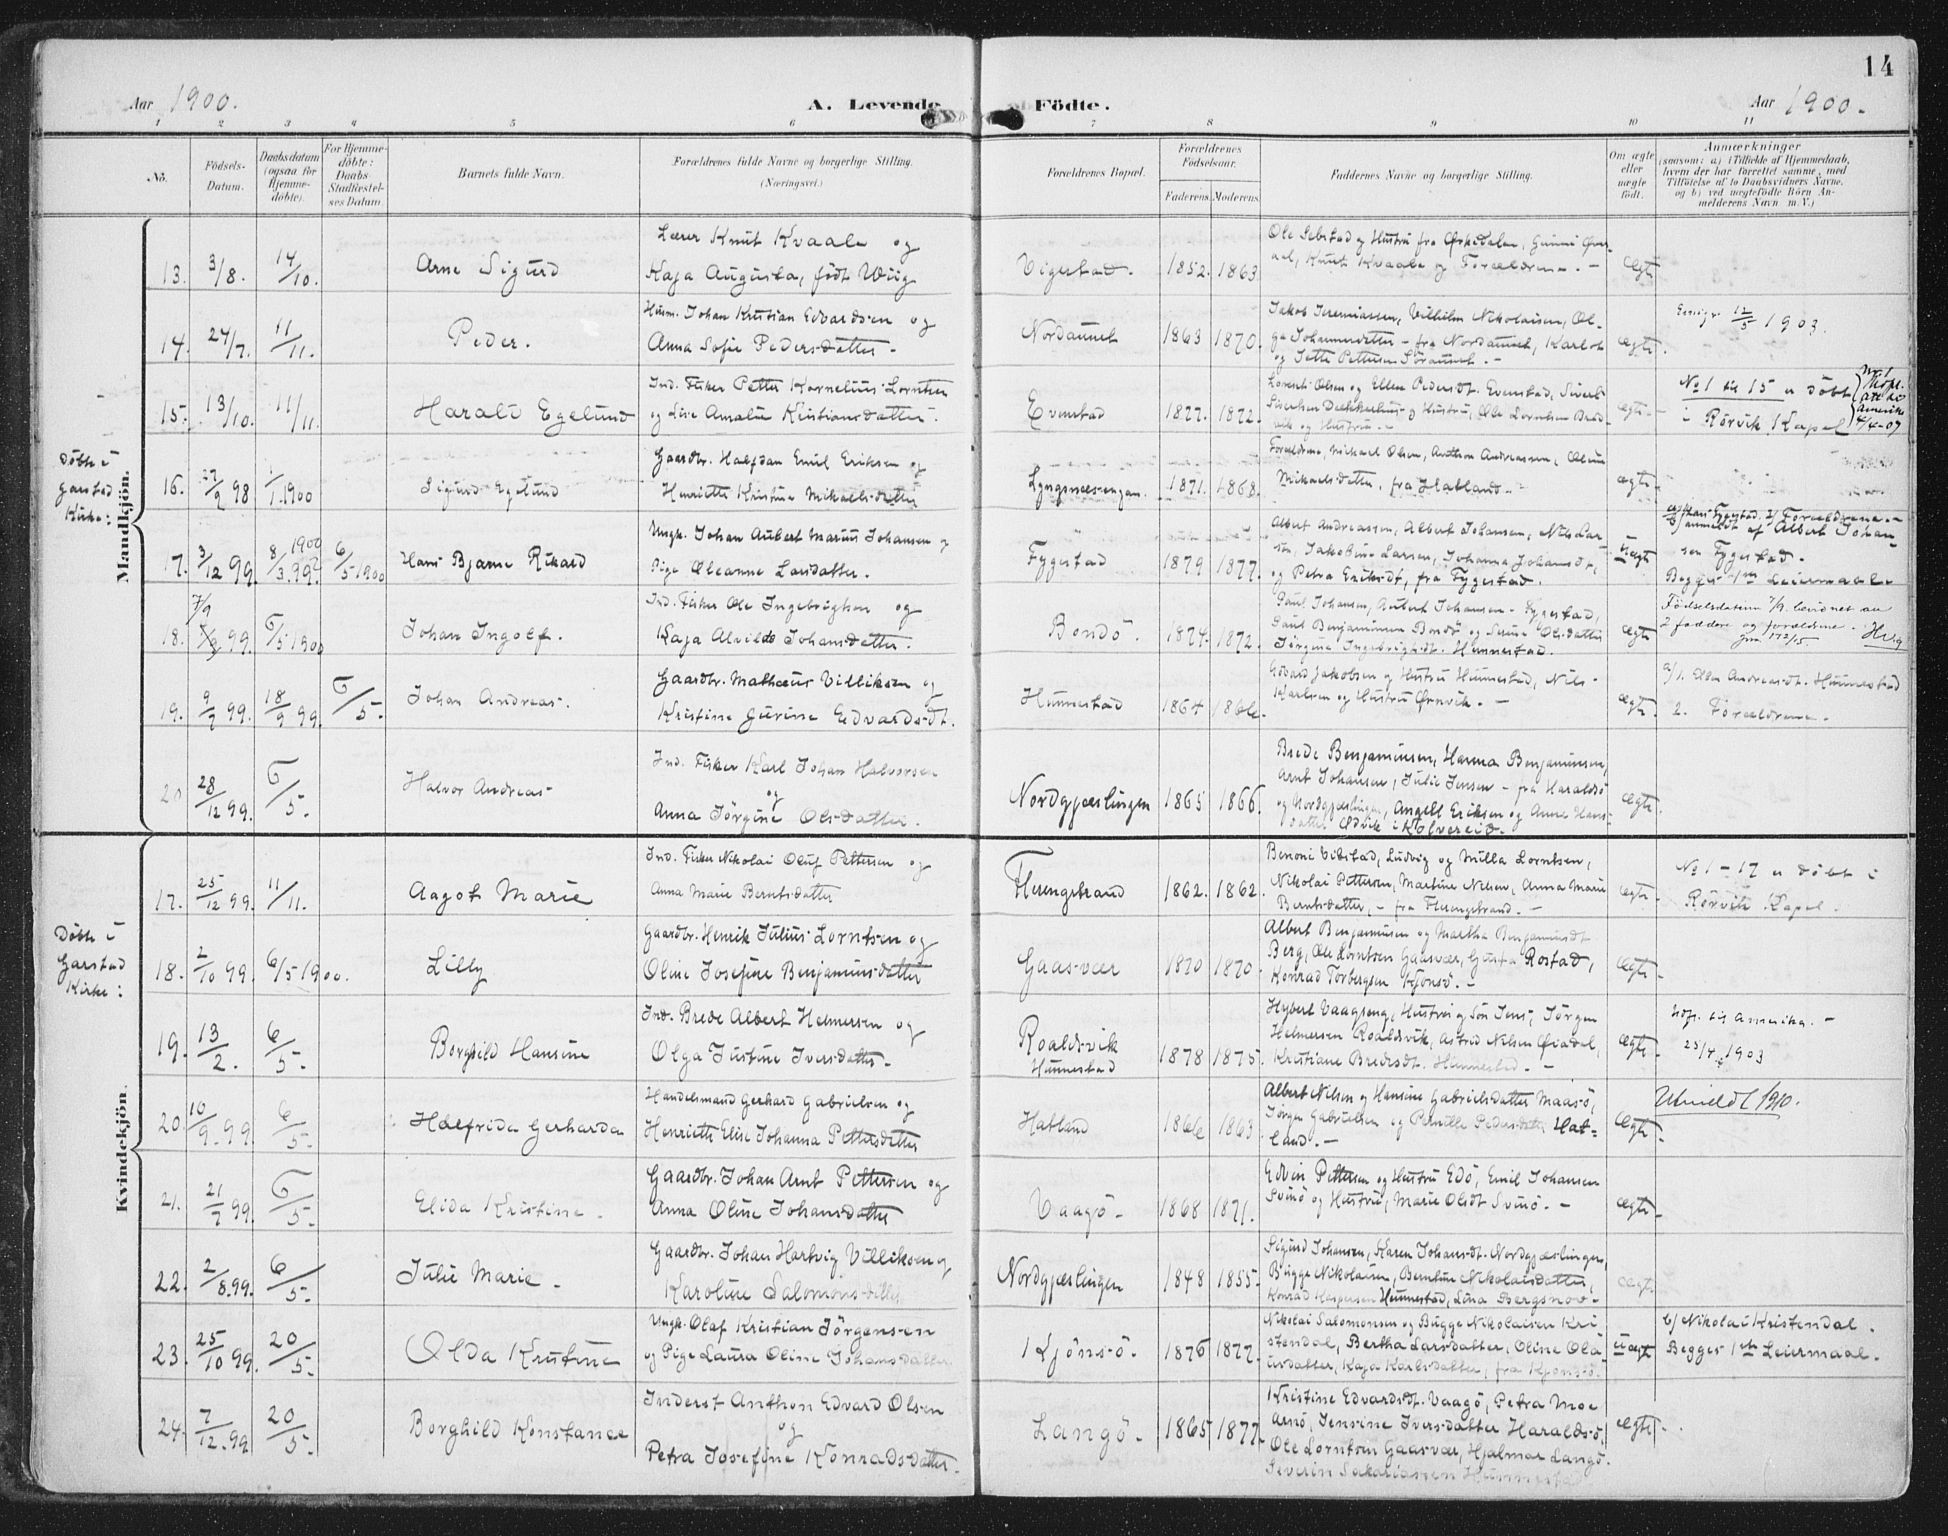 14
Aar 1900.
A. Levende Födte.
Aar 1900.
1 2 3 4 5 6 7 8 9 10 11
No.
Födsels-
Datum.
Daabsdatum
(ogsaa for
Hjemme-
döbte).
For Hjemme-
döbte:
Daabs-
Stadfæstel-
ses Datum
Barnets fulde Navn.
Forældrenes fulde Navne og borgerlige Stilling.
(Næringsvei.)
Forældrenes Bopæl.
Forældrenes
Födselsaar.
Faderens. Moderens.
Faddernes Navne og borgerlige Stilling.
Om ægte
eller
uægte
födt.
Anmærkninger
(saasom: a) i Tilfælde af Hjemmedaab,
hvem der har forrettet samme, med
Tilföielse af to Daabsvidners Navne,
og b) ved uægtefödte Börn An-
melderens Navn m. V.)
Mandkjön.
Döbte i
Garstad
Kirke:
13. 3/8. 14/10. Arne Sigurd
Lærer Knut Kvaale og
Kaja Augusta, födt Wiig
Vigestad. 1852. 1863
aal, Knut Kvaale og Forældrene. -
Ægte
14. 27/7. 11/11. Peder.
Husm. Johan Kristian Edvardsen og
Anna Sofie Pedersdatter -
Nordaunet 1863 1870.
Jakob Jeremiassen, Vilhelm Nikolaisen, Ol-
ga Johannesdatter - fra Nordaunet, Karl og
og Jette Pettersen Söraunet. -
ægte.
12/5 1903.
15. 13/10. 11/11. Harald Egelund
Ind. Fisker Petter Kornelius Lorntsen
og Live Amalie Kristiansdatter.
Evenstad 1877. 1872.
Lorents Olsen og Ellen Pedersdt. Evenstad, Sivert
vik og Hustru. -
ægte -
No 1 til 15 er döbt
i Rörvik Kapel
Amerika
4/4-07
16. 27/9 98 1/1.1900 Sigurd Egelund
Gaardbr. Halfdan Emil Eriksen og
Henriette Kristine Mikaelsdatter
Lyngsnesengan. 1871. 1868.
Forældrene, Mickael Olsen, Anthon Andreassen,
Mikaelsdatter, fra Hatland -
ægte.
17. 3/12 99. 8/3.99 1900 6/5 1900 Hans Bjarne Rikard
Ungk. Johan Aubert Marius Johansen og
Pige Oleanne Larsdatter.
Fygestad 1879 1877.
Albert Andreassen, Albert Johansen, Nils Lar-
sen, Jakobine Larsen, Johanna Johansdt,
og Petra Eriksdt, fra Fygestad.
uægt
b) anmeldt af Albert Johan-
sen Fygestad.
Begges 1ste Leiermaal
18. 7/9 99. 6/5 1900 Johan Ingolf.
Ind. Fisker Ole Ingebrigtsen og
Kaja Alvilde Johansdatter.
Bondö. 1874. 1872.
Paul Johansen, Aubert Johansen - Fygestad,
Paul Benjaminsen Bondö og Serine Olsdatter
Jörgine Ingebrigtsdt. Hunnestad.
ægte
Födselsdatum 7/9. bevidnet av
2 faddere og foreldrene.
19. 9/7 99. 18/9 99. 6/5. Johan Andreas.
Gaardbr. Mathæus Villiksen og
Kristine Gurine Edvardsdt.
Hunnestad 1864 1866.
Edvard Jakobsen og Hustru Hunnestad, Nils
Karlsen og Hustru Örnvik. -
ægte.
1. Ellen Andreasdt. Hunnestad
2. Forældrene.
20 28/12 99. 6/5. Halvor Andreas
Ind. Fisker Karl Johan Halvorsen
og
Anna Jörgine Olsdatter.
Nordgjæslingen 1865 1866.
Brede Benjaminsen, Hanna Benjaminsen,
Arnt Johansen, Julie Jensen - fra Haraldsö
og Nordgjæslingen, Angell Eriksen og Anne Hans-
datter Ödvik i Kolvereid.
Ægte.
Kvindekjön.
Döbte i
Garstad
Kirke:
17. 25/12 99. 11/11. Aagot Marie
Ind. Fisker Nikolai Oluf Pettersen og
Anna Marie Berntsdatter
Flerengstrand 1862. 1862.
Benoni Vibstad, Ludvig og Milla Lorntsen,
Nikolai Pettersen, Martine Nilsen, Anna Marie
Berntsdatter, - fra Flerengstrand. -
ægte.
No 1 - 17 er döbt i
Rörvik Kapel.
18. 2/10 99. 6/5 1900. Lilly
Gaardbr. Henrik Julius Lorntsen og
Oline Josefine Benjaminsdatter
Gaasvær 1870 1870.
Albert Benjaminsen og Martha Benjaminsdt
Berg, Ole Lorntsen Gaasvær, Gusta Rostad,
Konrad Torbergsen Kjönsö. -
Ægte.
19. 13/2. 6/5. Borghild Hansine
Ind. Brede Albert Helmersen og
Olga Justine Iversdatter -
Roaldsvik
Hunnestad 1878 1875.
Hybert Vaagseng, Hustru og Sön Jens, Jörgen
Helmersen Roaldsvik, Astrid Nilsen Öiadal,
Kristiane Bredesdt. Hunnestad. -
ægte.
Udfl. til Amerika. -
25/4 1903
20. 10/9.99. 6/5. Halfrida Gerharda
Handelsmand Gerhard Gabrielsen og
Henriette Elise Johanna Pettersdatter
Hatland 1866 1863
Albert Nilsen og Hansine Gabrielsdatter Maasö,
Jörgen Gabrielsen og Pernille Pedersdatter Hat-
land. -
Ægte.
Utmeldt 1910.
21. 21/7 99. 6/5. Elida Kristine.
Gaardbr. Johan Arnt Pettersen og
Anna Oline Johansdatter
Vaagö - 1868 1871.
Edvin Pettersen og Hustru Edö, Emil Johansen
Svinö og Hustru, Marie Olsdt Svinö. -
ægte.
22. 2/8.99. 6/5. Julie Marie -
Gaardbr. Johan Hartvig Villiksen og
Karoline Salomonsdatter
Nordgjæslingen 1848 1855.
Sigurd Johansen, Karen Johansdt. Nordgjæslingen,
Bugge Nikolaisen, Berntine Nikolaisdatter,
Konrad Kaspersen Hunnestad, Lina Bergsnov -
ægte.
23. 25/10 99. 20/5. Olda Kristine
Ungk. Olaf Kristian Jörgensen
og Pige Laura Oline Johansdatter.
Kjönsö. 1876 1877.
Nikolai Salomonsen og Bugge Nikolaisen Kri
stendal, Bertha Larsdatter, Oline Ola-
usdatter, Kaja Karlsdatter, fra Kjönsö.
uægt
b) Nikolai Kristendal.
Begges 1ste Leiermaal.
24. 7/12.99 20/5. Borghild Konstance
Inderst Anthon Edvard Olsen
og
Petra Josefine Konradsdatter.
Langö. 1865 1877.
Kristine Edvardsdt. Vaagö, Petra Moe
Arnö, Jensine Iversdatter Haraldsö,
Ole Lorntsen Gaasvær, Hjalmar Langö.
Severin Sakariassen Hunnesta
ægte.